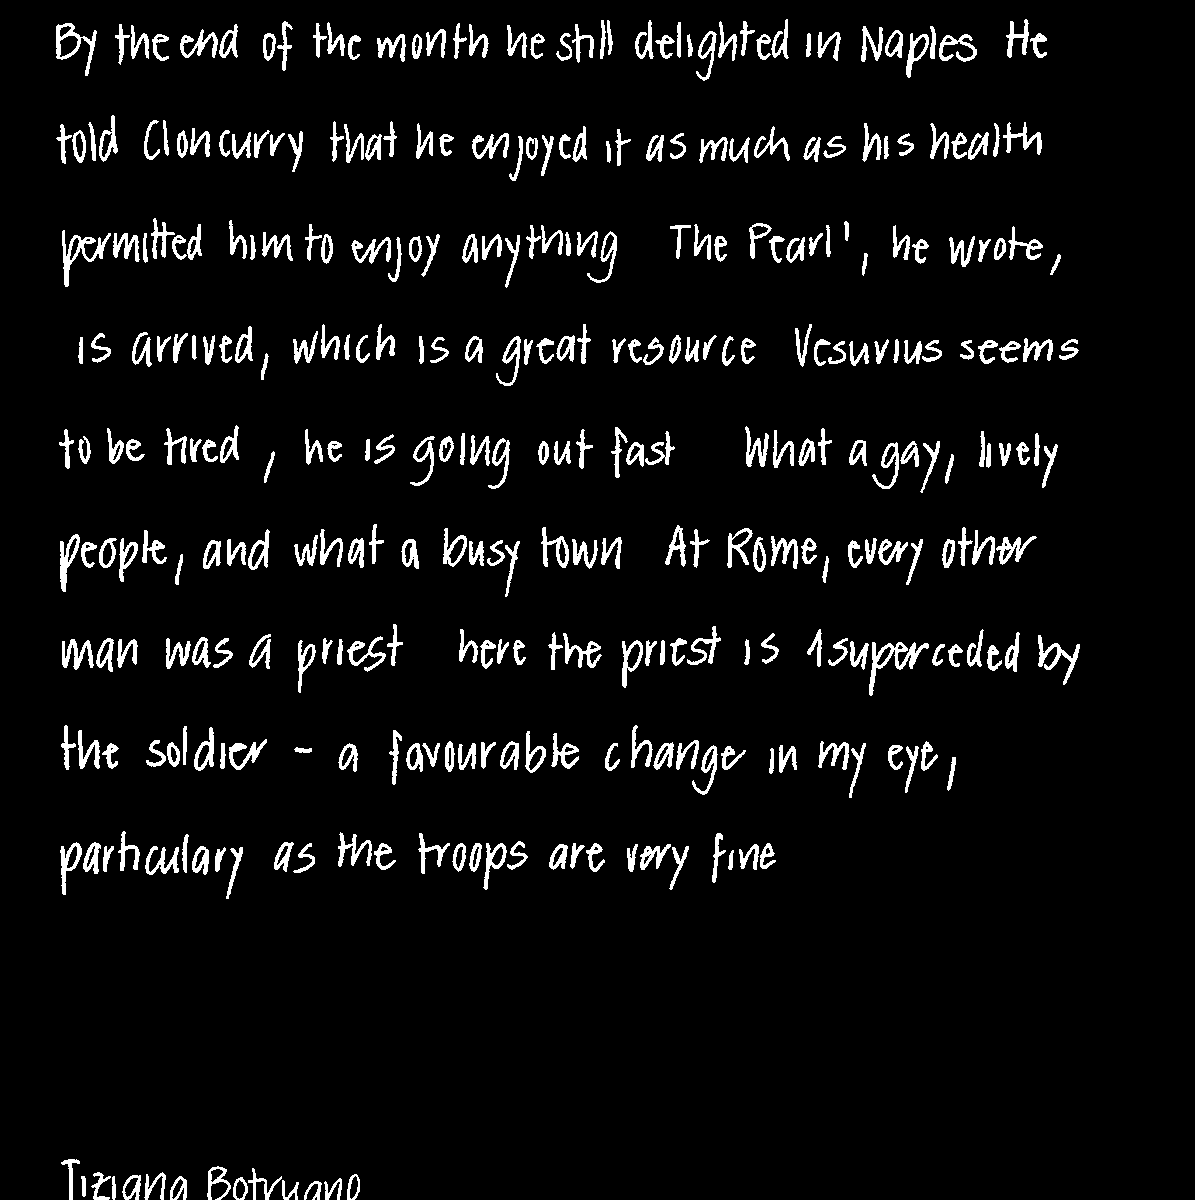 By the end of the month he still delighted in Naples He
told Cloncurry that he enjoyed it as much as his health
permitted him to enjoy anything The Pearl', he wrote,
is arrived, which is a great resource Vesuvius seems
to be tired, he is going out fast What a gay, lively
people, and what a busy town At Rome, every other
man was a priest here the priest is 1superceded by
the soldier - a favourable change in my eye,
particulary as the troops are very fine
Tiziana Botrugno